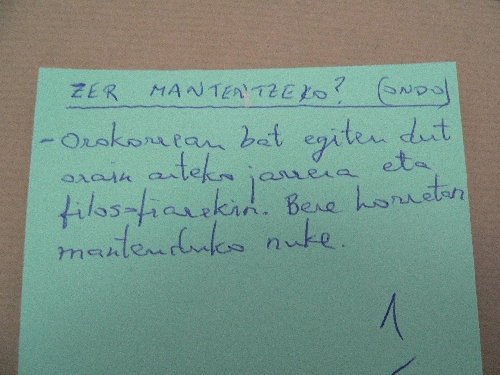 ZER MANTENTZEKO? (ONDO)
- Orokorrean bat egiten dut
orain arteko jarrera eta
filosofiarekin. Bere horretan
mantenduko nuke.
1